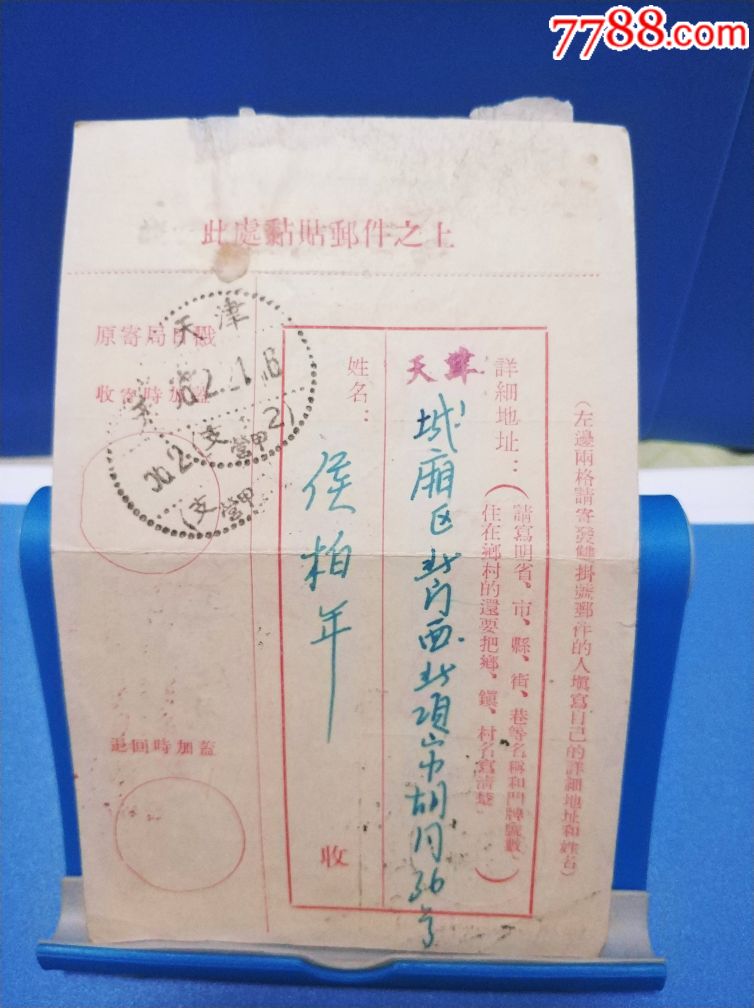 7788.com
此處黏貼郵件之上
(左邊兩格請寄發雙掛號郵件的人填寫自己的詳細地址和姓名)
詳細地址：
(請寫明省、市、縣、街、巷等名稱和門牌號數，
住在鄉村的還要把鄉、鎮、村名寫清楚)
天津
城廂区北门西北项帘胡同36号
姓名：
侯柏年
收
原寄局日戳
收寄時加蓋
天津
56.2.1.16
(支營甲2)
56.2
(支營甲
退回時加蓋